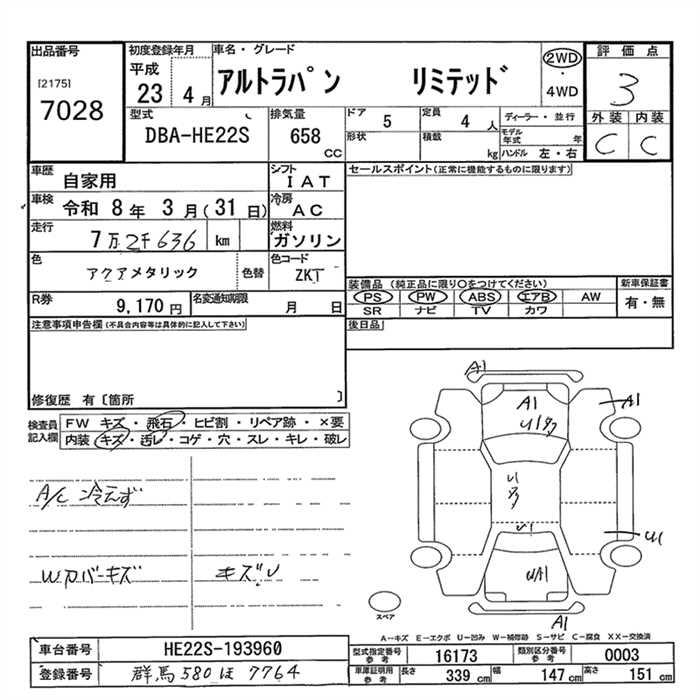 出品番号
[2175]
7028
初度登録年月
平成
23 4月
車名・グレード
アルトラパン リミテッド
2WD
・
4WD
評価点
3
外装 内装
C C
型式
DBA-HE22S
排気量
658
CC
ドア 5
形状
定員 4人
積載 kg
ディーラー・並行
モデル年式 年
ハンドル 左・右
車歴 自家用
シフト IAT
車検 令和 8年 3月(31日)
冷房 AC
走行 7万2千636 km
燃料 ガソリン
色 アクアメタリック 色替
色コード ZKT
R券 9,170円
名変通知期限 月 日
セールスポイント(正常に機能するものに限ります)
装備品 (純正品に限り○をつけてください)
PS PW ABS エアB AW
SR ナビ TV カワ
新車保証書
有・無
後日品
注意事項申告欄(不具合内容等は具体的に記入して下さい)
修復歴 有〔箇所 〕
検査員記入欄
FW キズ・飛石・ヒビ割・リペア跡・×要
内装 キズ・汚レ・コゲ・穴・スレ・キレ・破レ
A/C 冷えず
Wカバーキズ キズU
A1
A1
U1多
A1
U1
多
U1
U1
UA1
A1
スペア
A−キズ E−エクボ U−凹み W−補修跡 S−サビ C−腐食 XX−交換済
車台番号 HE22S-193960
登録番号 群馬580ほ7764
型式指定番号参考 16173
類別区分番号参考 0003
車庫証明用参考 長さ 339cm 幅 147cm 高さ 151cm